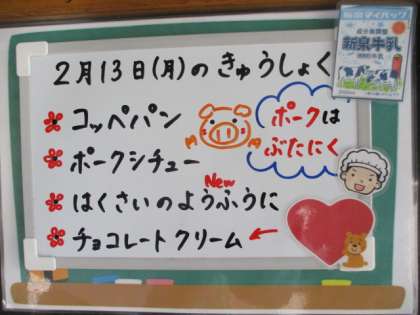 2月13日(月)のきゅうしょく
コッペパン
ポークシチュー
New
はくさいのようふうに
チョコレートクリーム
ポークは
ぶたにく
新泉牛乳